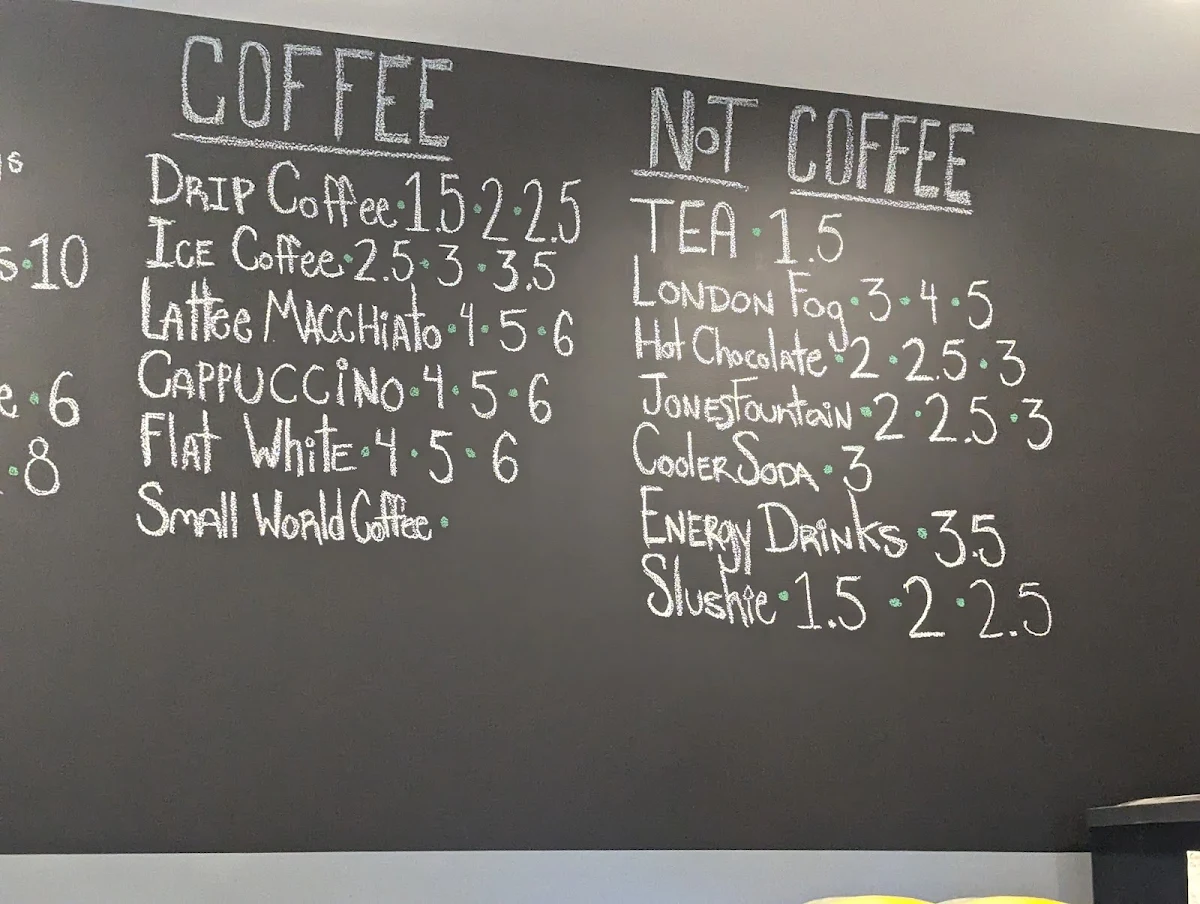 s·10
e·6
·8
COFFEE
DRIP Coffee·1.5·2·2.5
ICE Coffee·2.5·3·3.5
Lattee MACCHiAto·4·5·6
CAPPUCCiNO·4·5·6
Flat WhitE·4·5·6
Small World Coffee·
NoT COFFEE
TEA·1.5
LONDON Fog·3·4·5
Hot Chocolate·2·2.5·3
JONES Fountain·2·2.5·3
Cooler SODA·3
ENERgy DRiNKs·3.5
Slushie·1.5·2·2.5